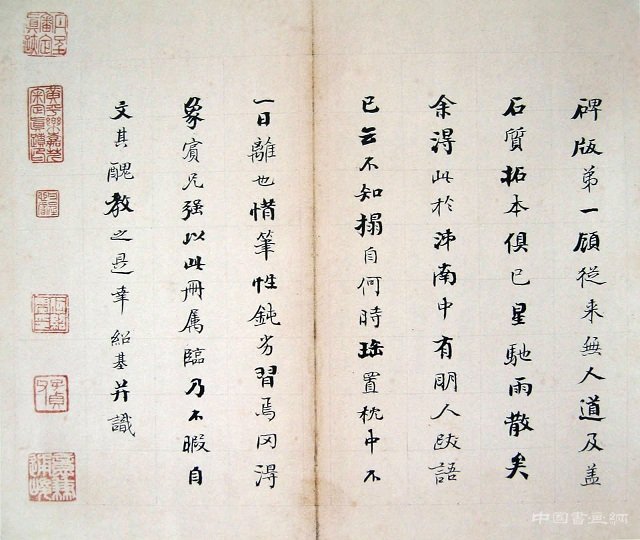 碑版第一顧從来無人道及盖
石質拓本俱已星馳雨散矣
余淂此於沛南中有明人跋語
已云不知搨自何時珤置枕中不
一日離也惜筆性鈍劣習焉冈淂
象賓兄强以此冊属臨乃不暇自
文其醜教之是幸 紹基并識
子貞
中国書画網